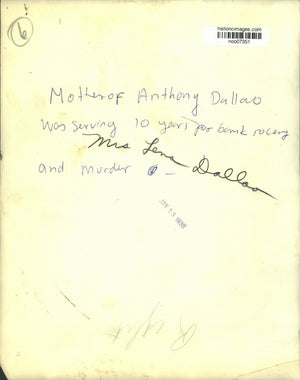 6
historicimages.com
noo07351
Mother of Anthony Dallao
was serving 10 years for bank robery
Mrs Lena Dallao
and murder
JAN 13 1938
Right